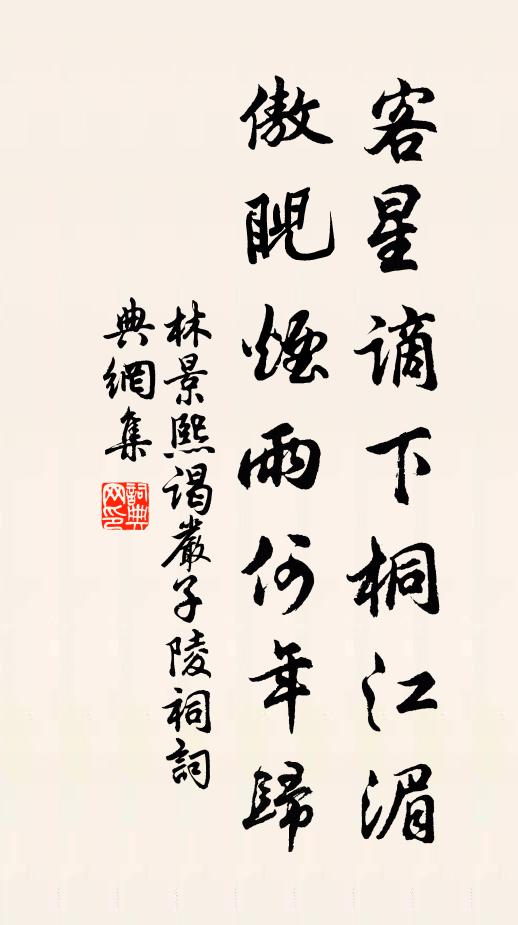 客星謫下桐江湄
傲睨煙雨何年歸
林景熙謁嚴子陵祠詞
典網集
詞典网印